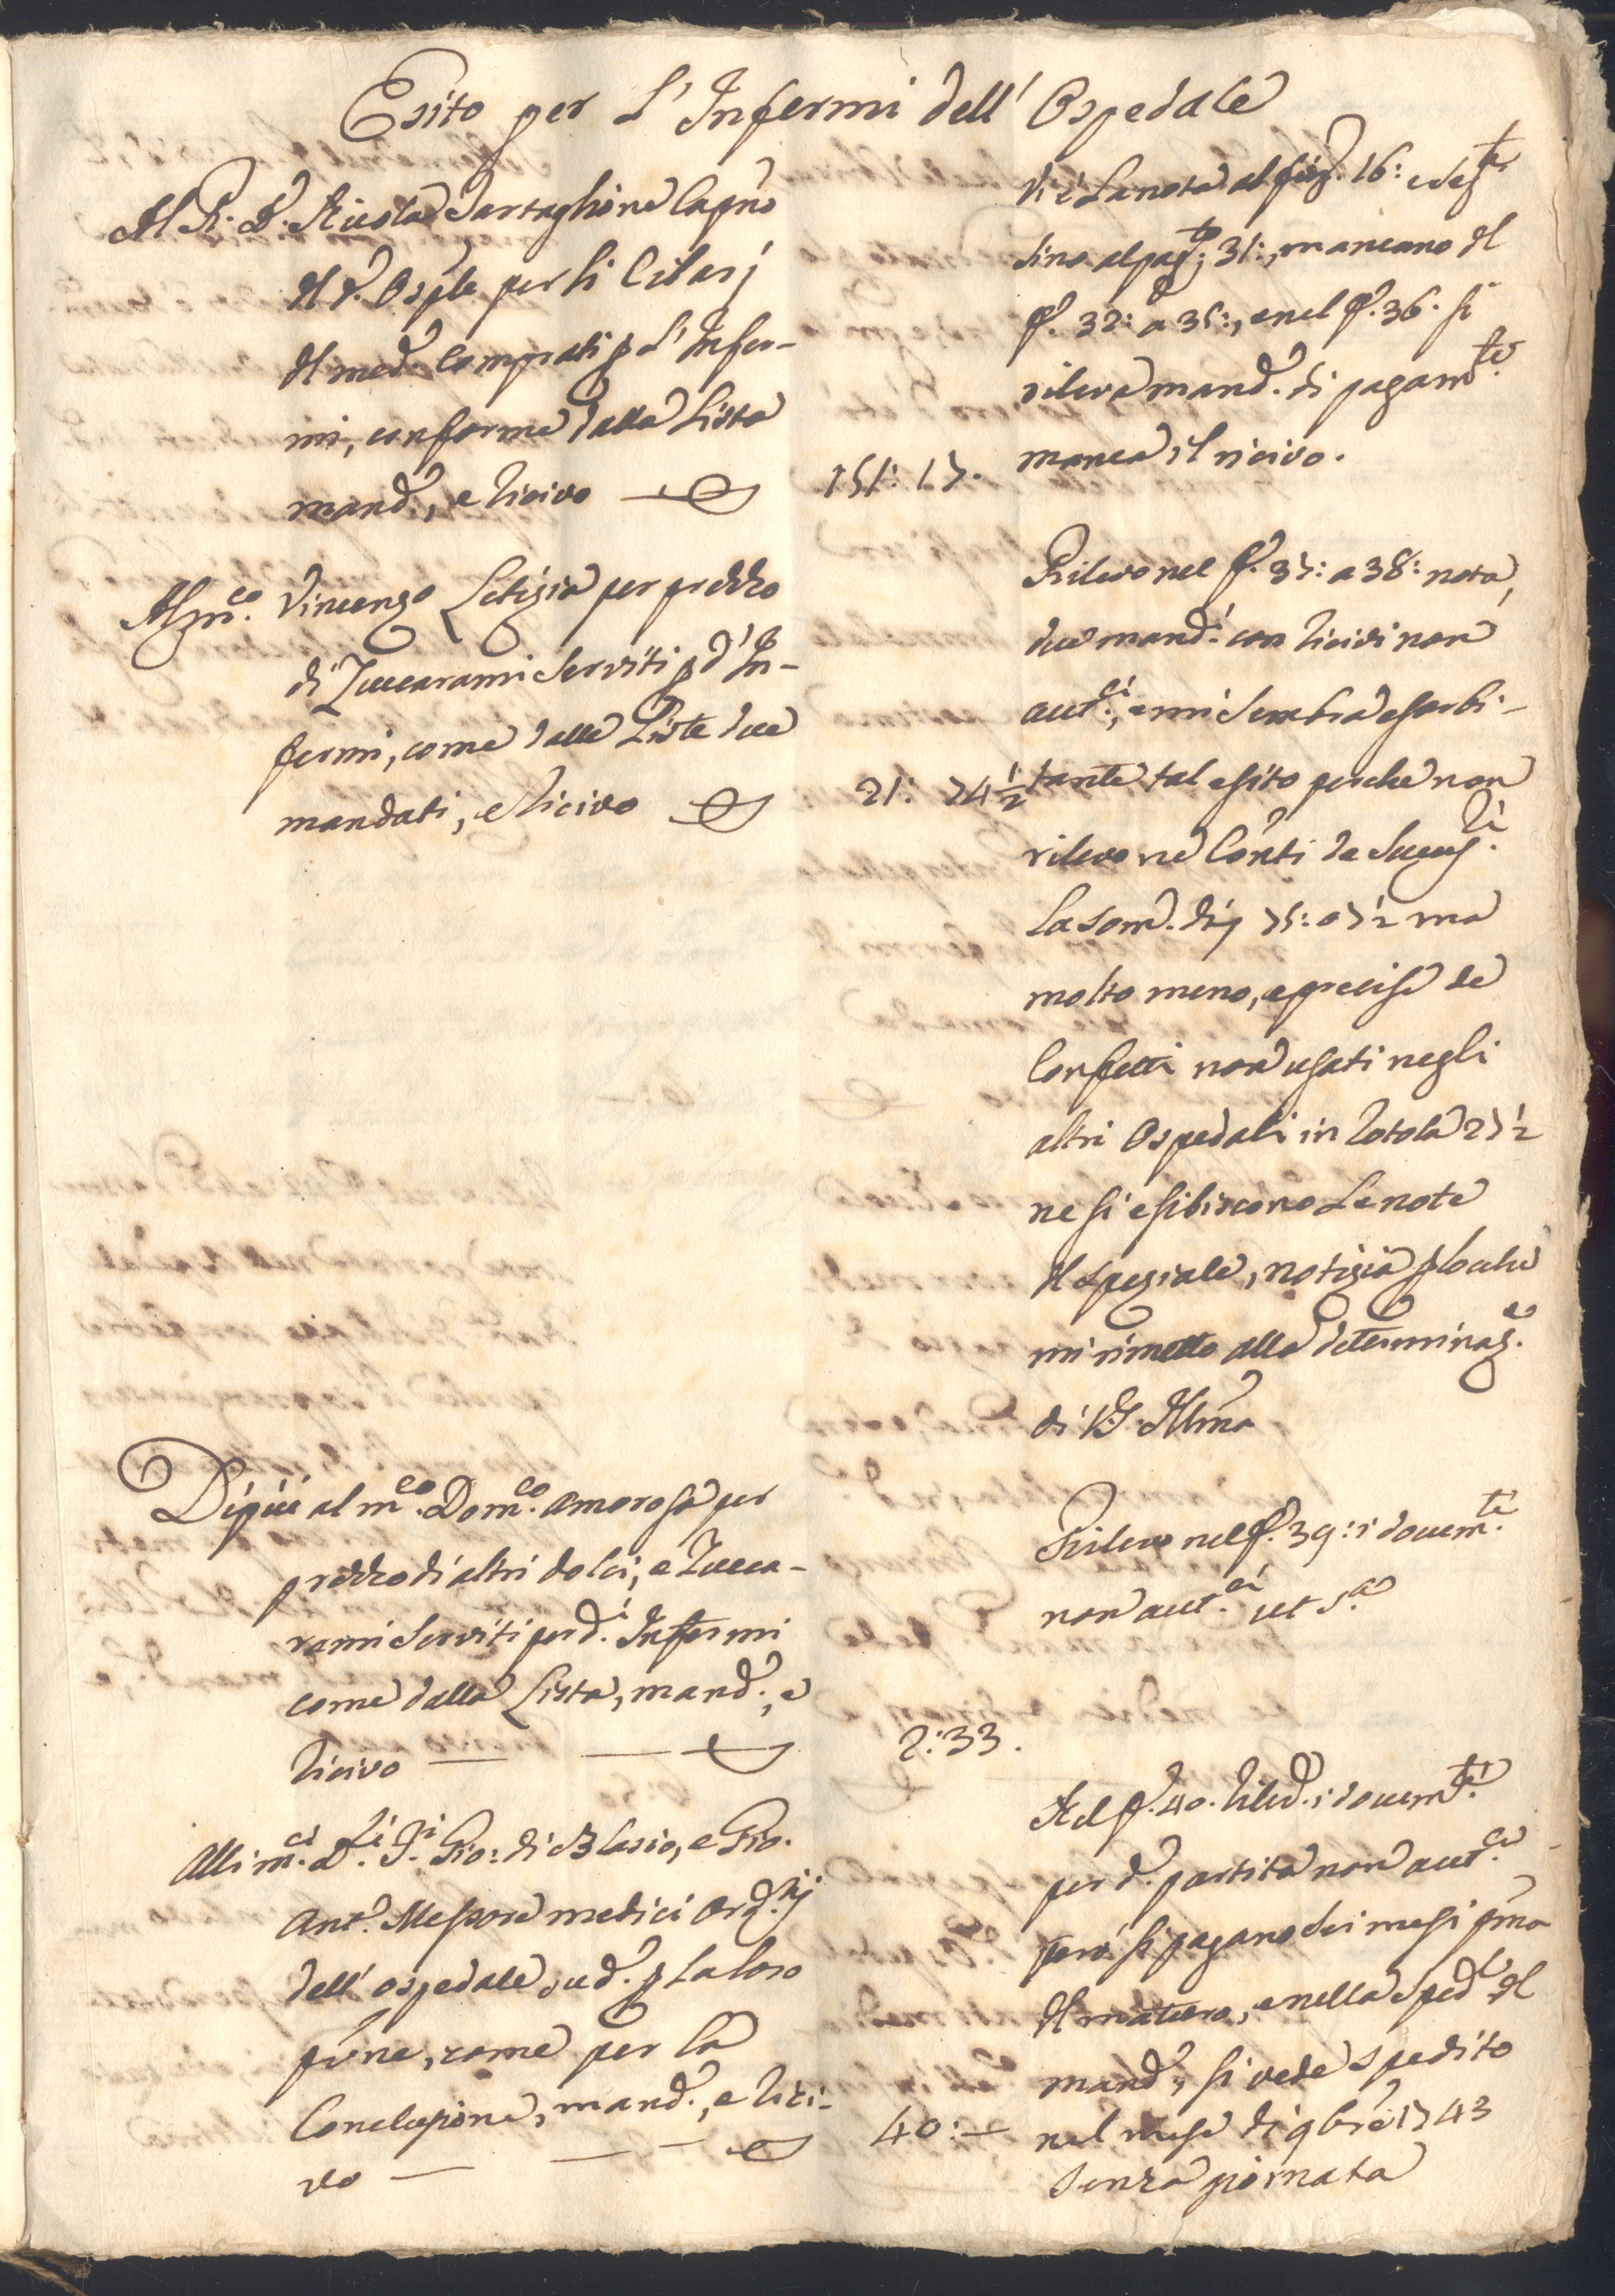 Esito per L'Infermi dell' Ospedale
Al R. D. Nicola Tartaglione Capno
del d. Osple per li Cibarj
del med. Comprati p L'Infer-
mi, conforme dalla Lista
mand., e ricivo
151: 17.
Al mco. Vincenzo Letizia per prezzo
di Zuccarami Serviti p di In-
fermi, come dalle Liste due
mandati, e ricivo
21: 74 1/2
Di più al mco. Domco. Amorosa per
prezzo di altri dolci, e Zucca-
rami Serviti per di. Infermi
come dalla Lista, mand., e
ricivo
2:33.
Alli mci. Dri. Fi. Gio: di Blasio, e Gio.
Ant. Messore medici Ord.rij
dell' ospedale sud. p la loro
pvne, come per la
Conclusione, mand., e rici-
vo
40:—
Vi è La nota al fog. 16: e segte
Sino al pagto; 31:, mancano del
f. 32: a 35:, e nel f. 36. si
rileva mand. di pagamto.
manca il ricivo.
Rilevo nel f. 37: a 38: nota,
due mandi. con ricivi non
autci., e mi Sembra esorbi-
tante tal esito perche non
rilevo ne Conti de Sucessi.
La Som. di 75: 07 1/2 ma
molto meno, e precise de
Confetti non usati negli
altri Ospedali in rotola 27 1/2
ne si esibiscono Le note
del Speziale, notizia p locche
mi rimetto alla determinaze.
di V.S. Illma
Rilevo nel f. 39: i documti.
non autci. ut Sa.
Nel f. 40. riled. i documti.
per d. partita non autci.
però si pagano Sei mesi pma
del maturo, e nella Sped.e del
mand., si vede spedito
nel mese di 9bre 1743
Senza giornata